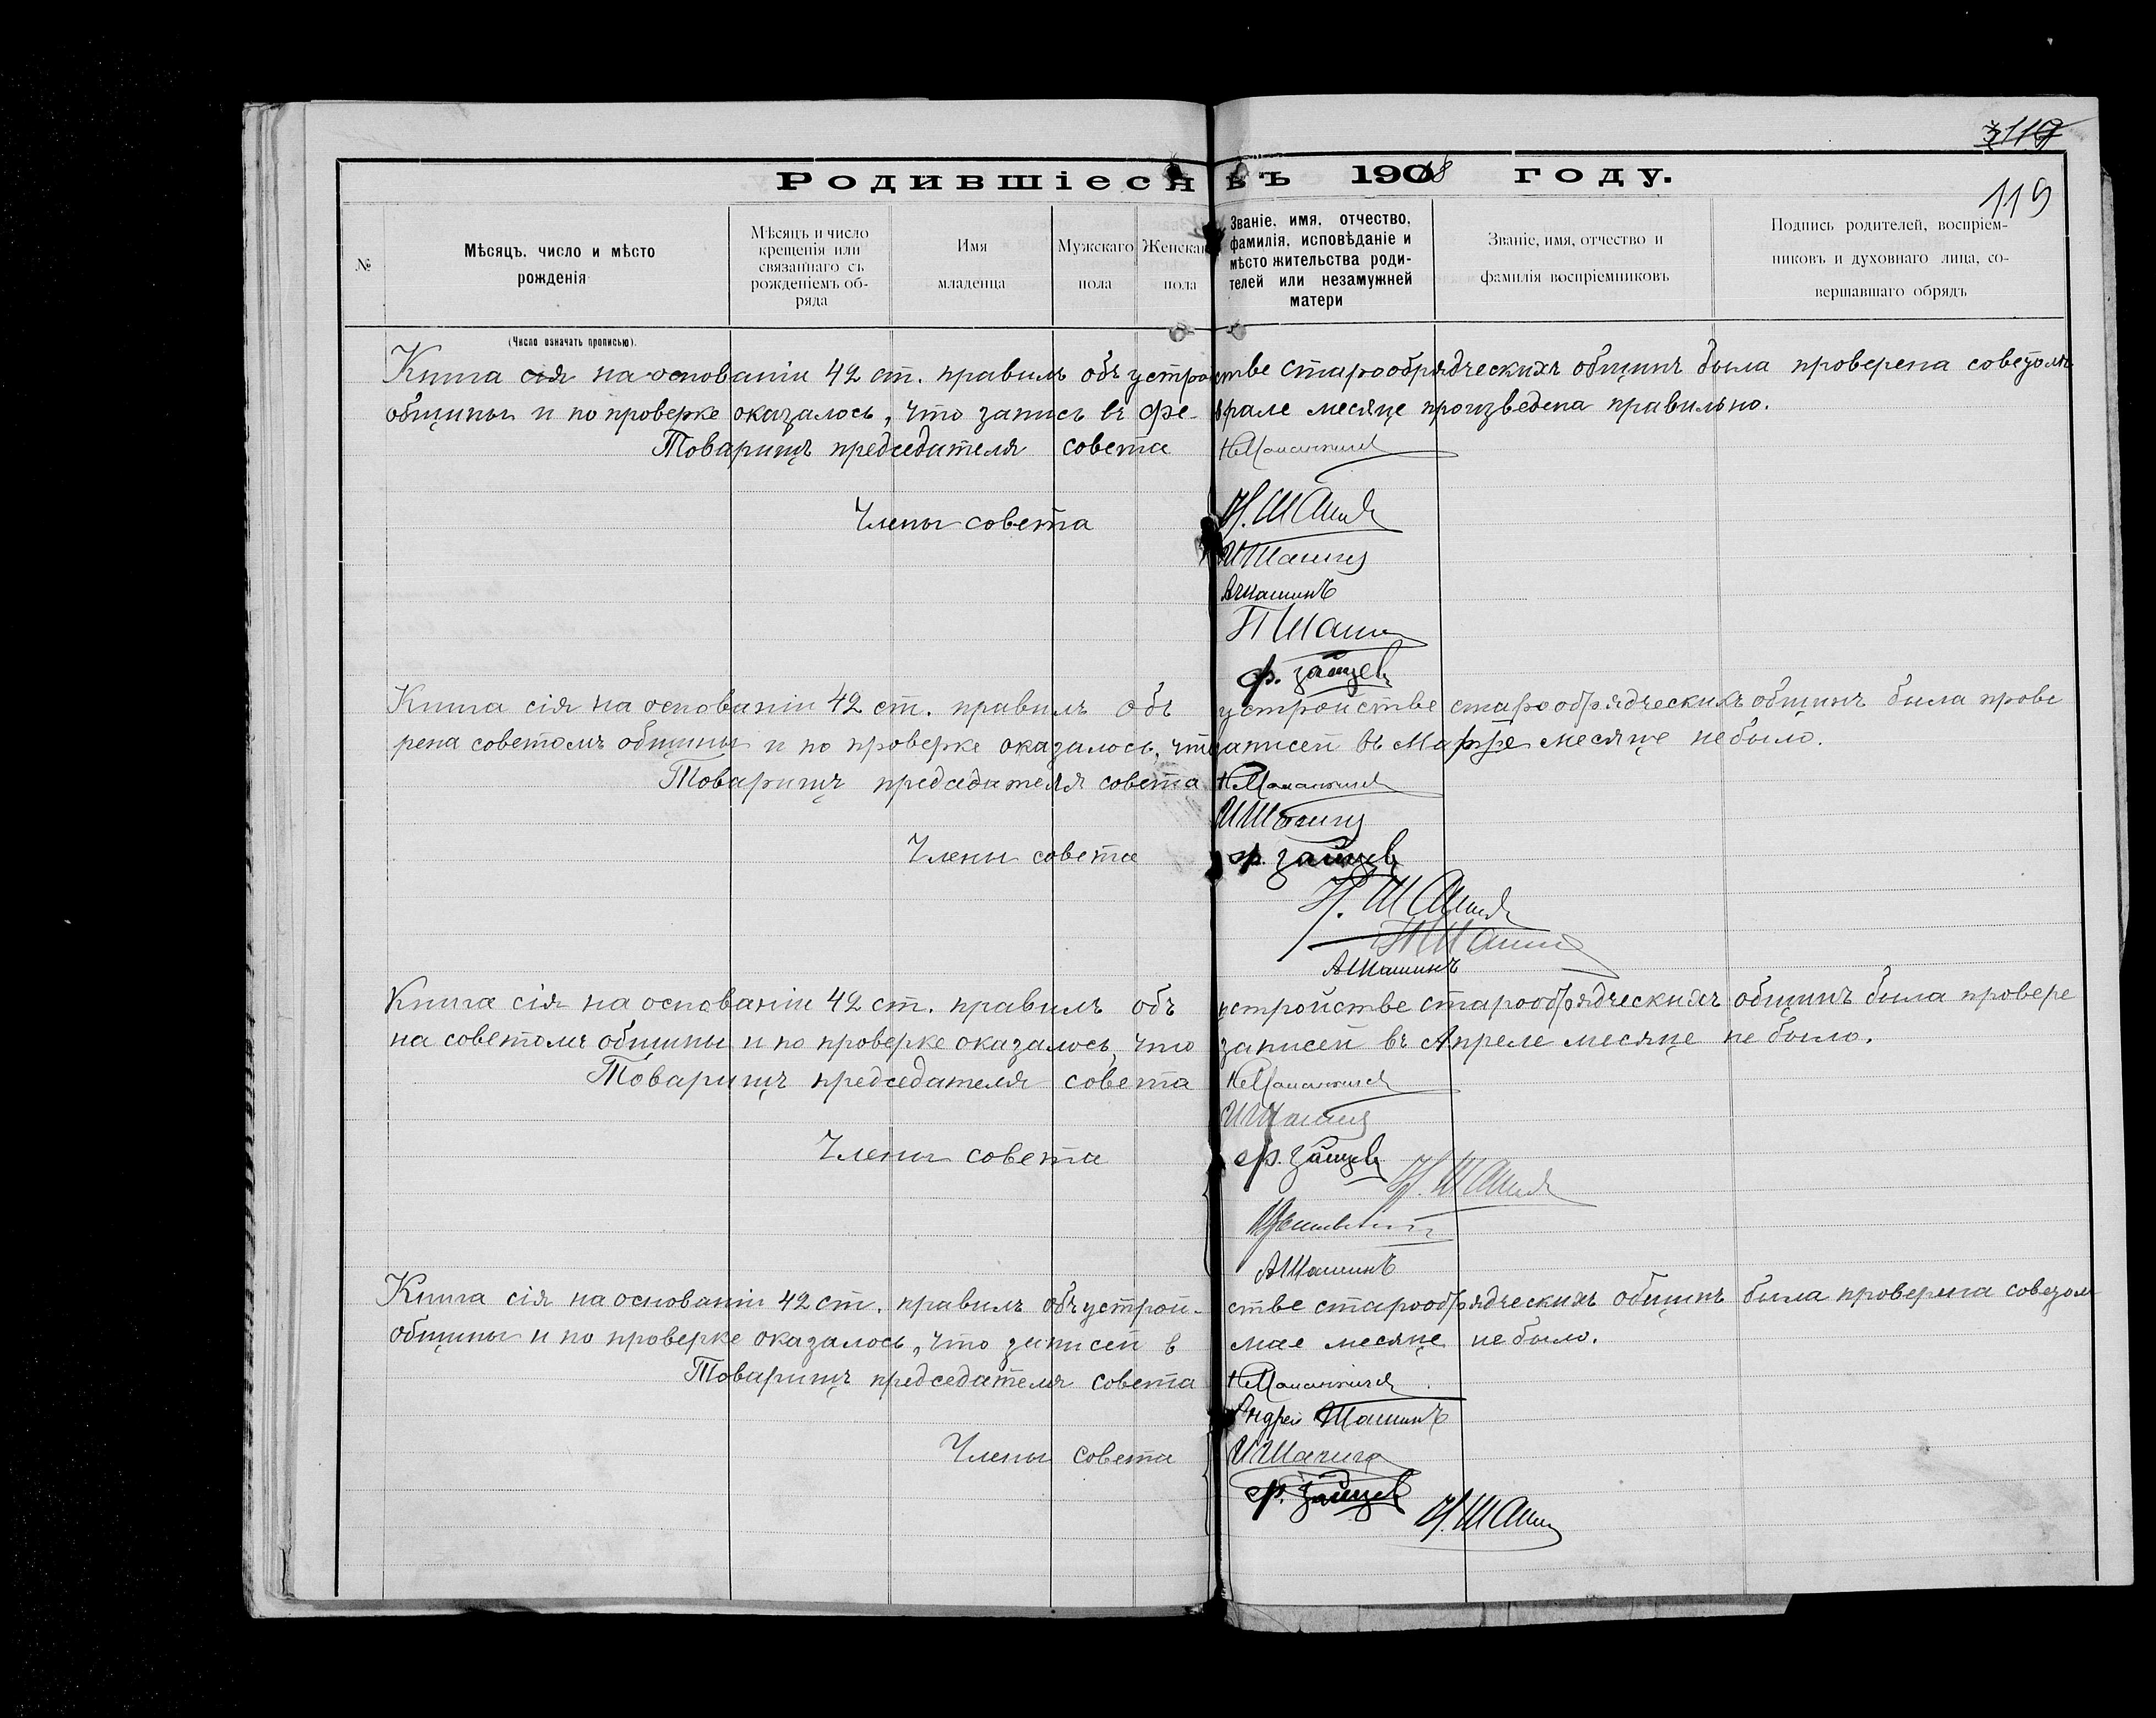 119
Родившіеся въ 1918 году.
119
№
Мѣсяцъ, число и мѣсто рожденія
Мѣсяцъ и число крещенія или связаннаго съ рожденіемъ обряда
Имя младенца
Мужскаго пола
Женскаго пола
Званіе, имя, отчество, фамилія, исповѣданіе и мѣсто жительства родителей или незамужней матери
Званіе, имя, отчество и фамилія воспріемниковъ
Подпись родителей, воспріемниковъ и духовнаго лица, совершавшаго обрядъ
(Число означать прописью).
Книга сія на основаніи 42 ст. правилъ объ устройстве старообрядческихъ общинъ была проверена советомъ
общины и по проверке оказалось, что запись въ феврале месяце произведена правильно.
Товарищъ председателя совета
Члены совета
Н. Шашин
И Шашин
А Шашинъ
П Шашин
Ф. Зайцев
Книга сія на основаніи 42 ст. правилъ объ устройстве старообрядческихъ общинъ была прове
рена советомъ общины и по проверке оказалось, что записей въ Марте месяце небыло.
Товарищъ председателя совета
И Шашин
Члены совета ф. Зайцев
Н. Шашин
П Шашин
А Шашинъ
Книга сія на основаніи 42 ст. правилъ объ устройстве старообрядческихъ общинъ была провере
на советомъ общины и по проверке оказалось, что записей въ Апреле месяце не было.
Товарищъ председателя совета
И Шашин
Члены совета ф. Зайцев
Н. Шашин
А Шашинъ
Книга сія на основаніи 42 ст. правилъ объ устройстве старообрядческихъ общинъ была проверена советом
общины и по проверке оказалось, что записей в мае месяце не было.
Товарищъ председателя совета
Андрей Шашинъ
Члены совета И Шашин
ф. Зайцев
Н. Шашин